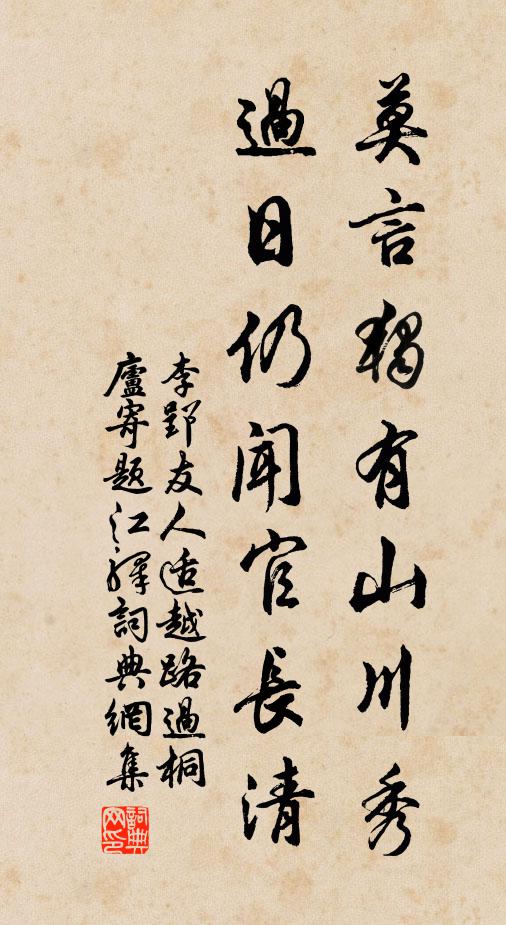 莫言獨有山川秀
過日仍聞官長清
李郢友人适越路過桐
廬寄題江驛詞典網集
詞典网印